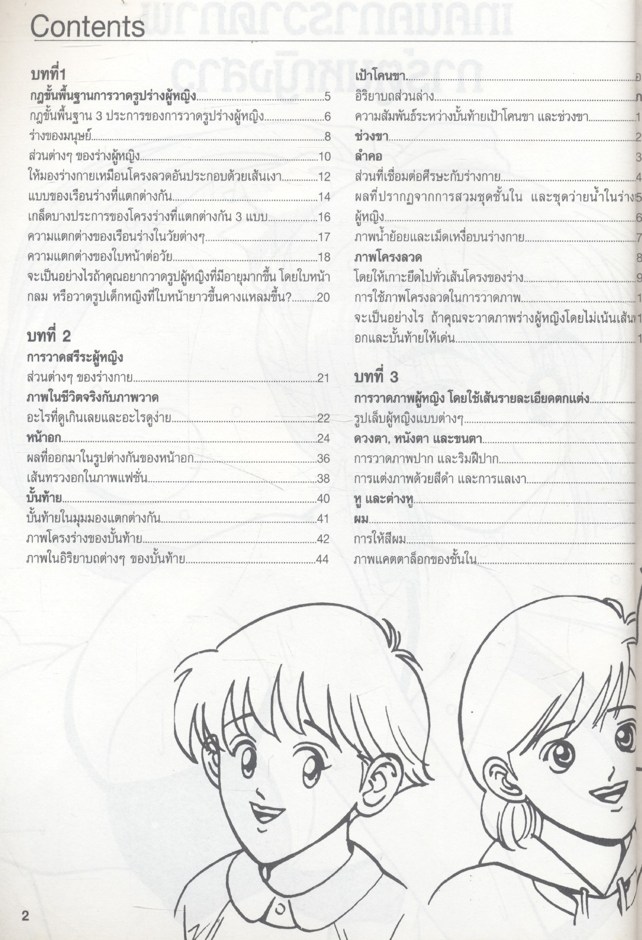 Contents
บทที่1
กฎขั้นพื้นฐานการวาดรูปร่างผู้หญิง 5
กฎขั้นพื้นฐาน 3 ประการของการวาดรูปร่างผู้หญิง 6
ร่างของมนุษย์ 8
ส่วนต่างๆ ของร่างผู้หญิง 10
ให้มองร่างกายเหมือนโครงลวดอันประกอบด้วยเส้นเงา 12
แบบของเรือนร่างที่แตกต่างกัน 14
เกล็ดบางประการของโครงร่างที่แตกต่างกัน 3 แบบ 16
ความแตกต่างของเรือนร่างในวัยต่างๆ 17
ความแตกต่างของใบหน้าต่อวัย 18
จะเป็นอย่างไรถ้าคุณอยากวาดรูปผู้หญิงที่มีอายุมากขึ้น โดยใบหน้า
กลม หรือวาดรูปเด็กหญิงที่ใบหน้ายาวขึ้นคางแหลมขึ้น? 20
บทที่ 2
การวาดสรีระผู้หญิง
ส่วนต่างๆ ของร่างกาย 21
ภาพในชีวิตจริงกับภาพวาด
อะไรที่ดูเกินเลยและอะไรดูง่าย 22
หน้าอก 24
ผลที่ออกมาในรูปต่างกันของหน้าอก 36
เส้นทรวงอกในภาพแฟชั่น 38
บั้นท้าย 40
บั้นท้ายในมุมมองแตกต่างกัน 41
ภาพโครงร่างของบั้นท้าย 42
ภาพในอิริยาบถต่างๆ ของบั้นท้าย 44
เป้าโคนขา
อิริยาบถส่วนล่าง
ความสัมพันธ์ระหว่างบั้นท้ายเป้าโคนขา และช่วงขา
ช่วงขา
ลำคอ
ส่วนที่เชื่อมต่อศีรษะกับร่างกาย
ผลที่ปรากฏจากการสวมชุดชั้นใน และชุดว่ายน้ำในร่าง
ผู้หญิง
ภาพน้ำย้อยและเม็ดเหงื่อบนร่างกาย
ภาพโครงลวด
โดยให้เกาะยึดไปทั่วเส้นโครงของร่าง
การใช้ภาพโครงลวดในการวาดภาพ
จะเป็นอย่างไร ถ้าคุณจะวาดภาพร่างผู้หญิงโดยไม่เน้นเส้น
อกและบั้นท้ายให้เด่น
บทที่ 3
การวาดภาพผู้หญิง โดยใช้เส้นรายละเอียดตกแต่ง
รูปเล็บผู้หญิงแบบต่างๆ
ดวงตา, หนังตา และขนตา
การวาดภาพปาก และริมฝีปาก
การแต่งภาพด้วยสีดำ และการแลเงา
หู และต่างหู
ผม
การให้สีผม
ภาพแคตตาล็อกของชั้นใน
2